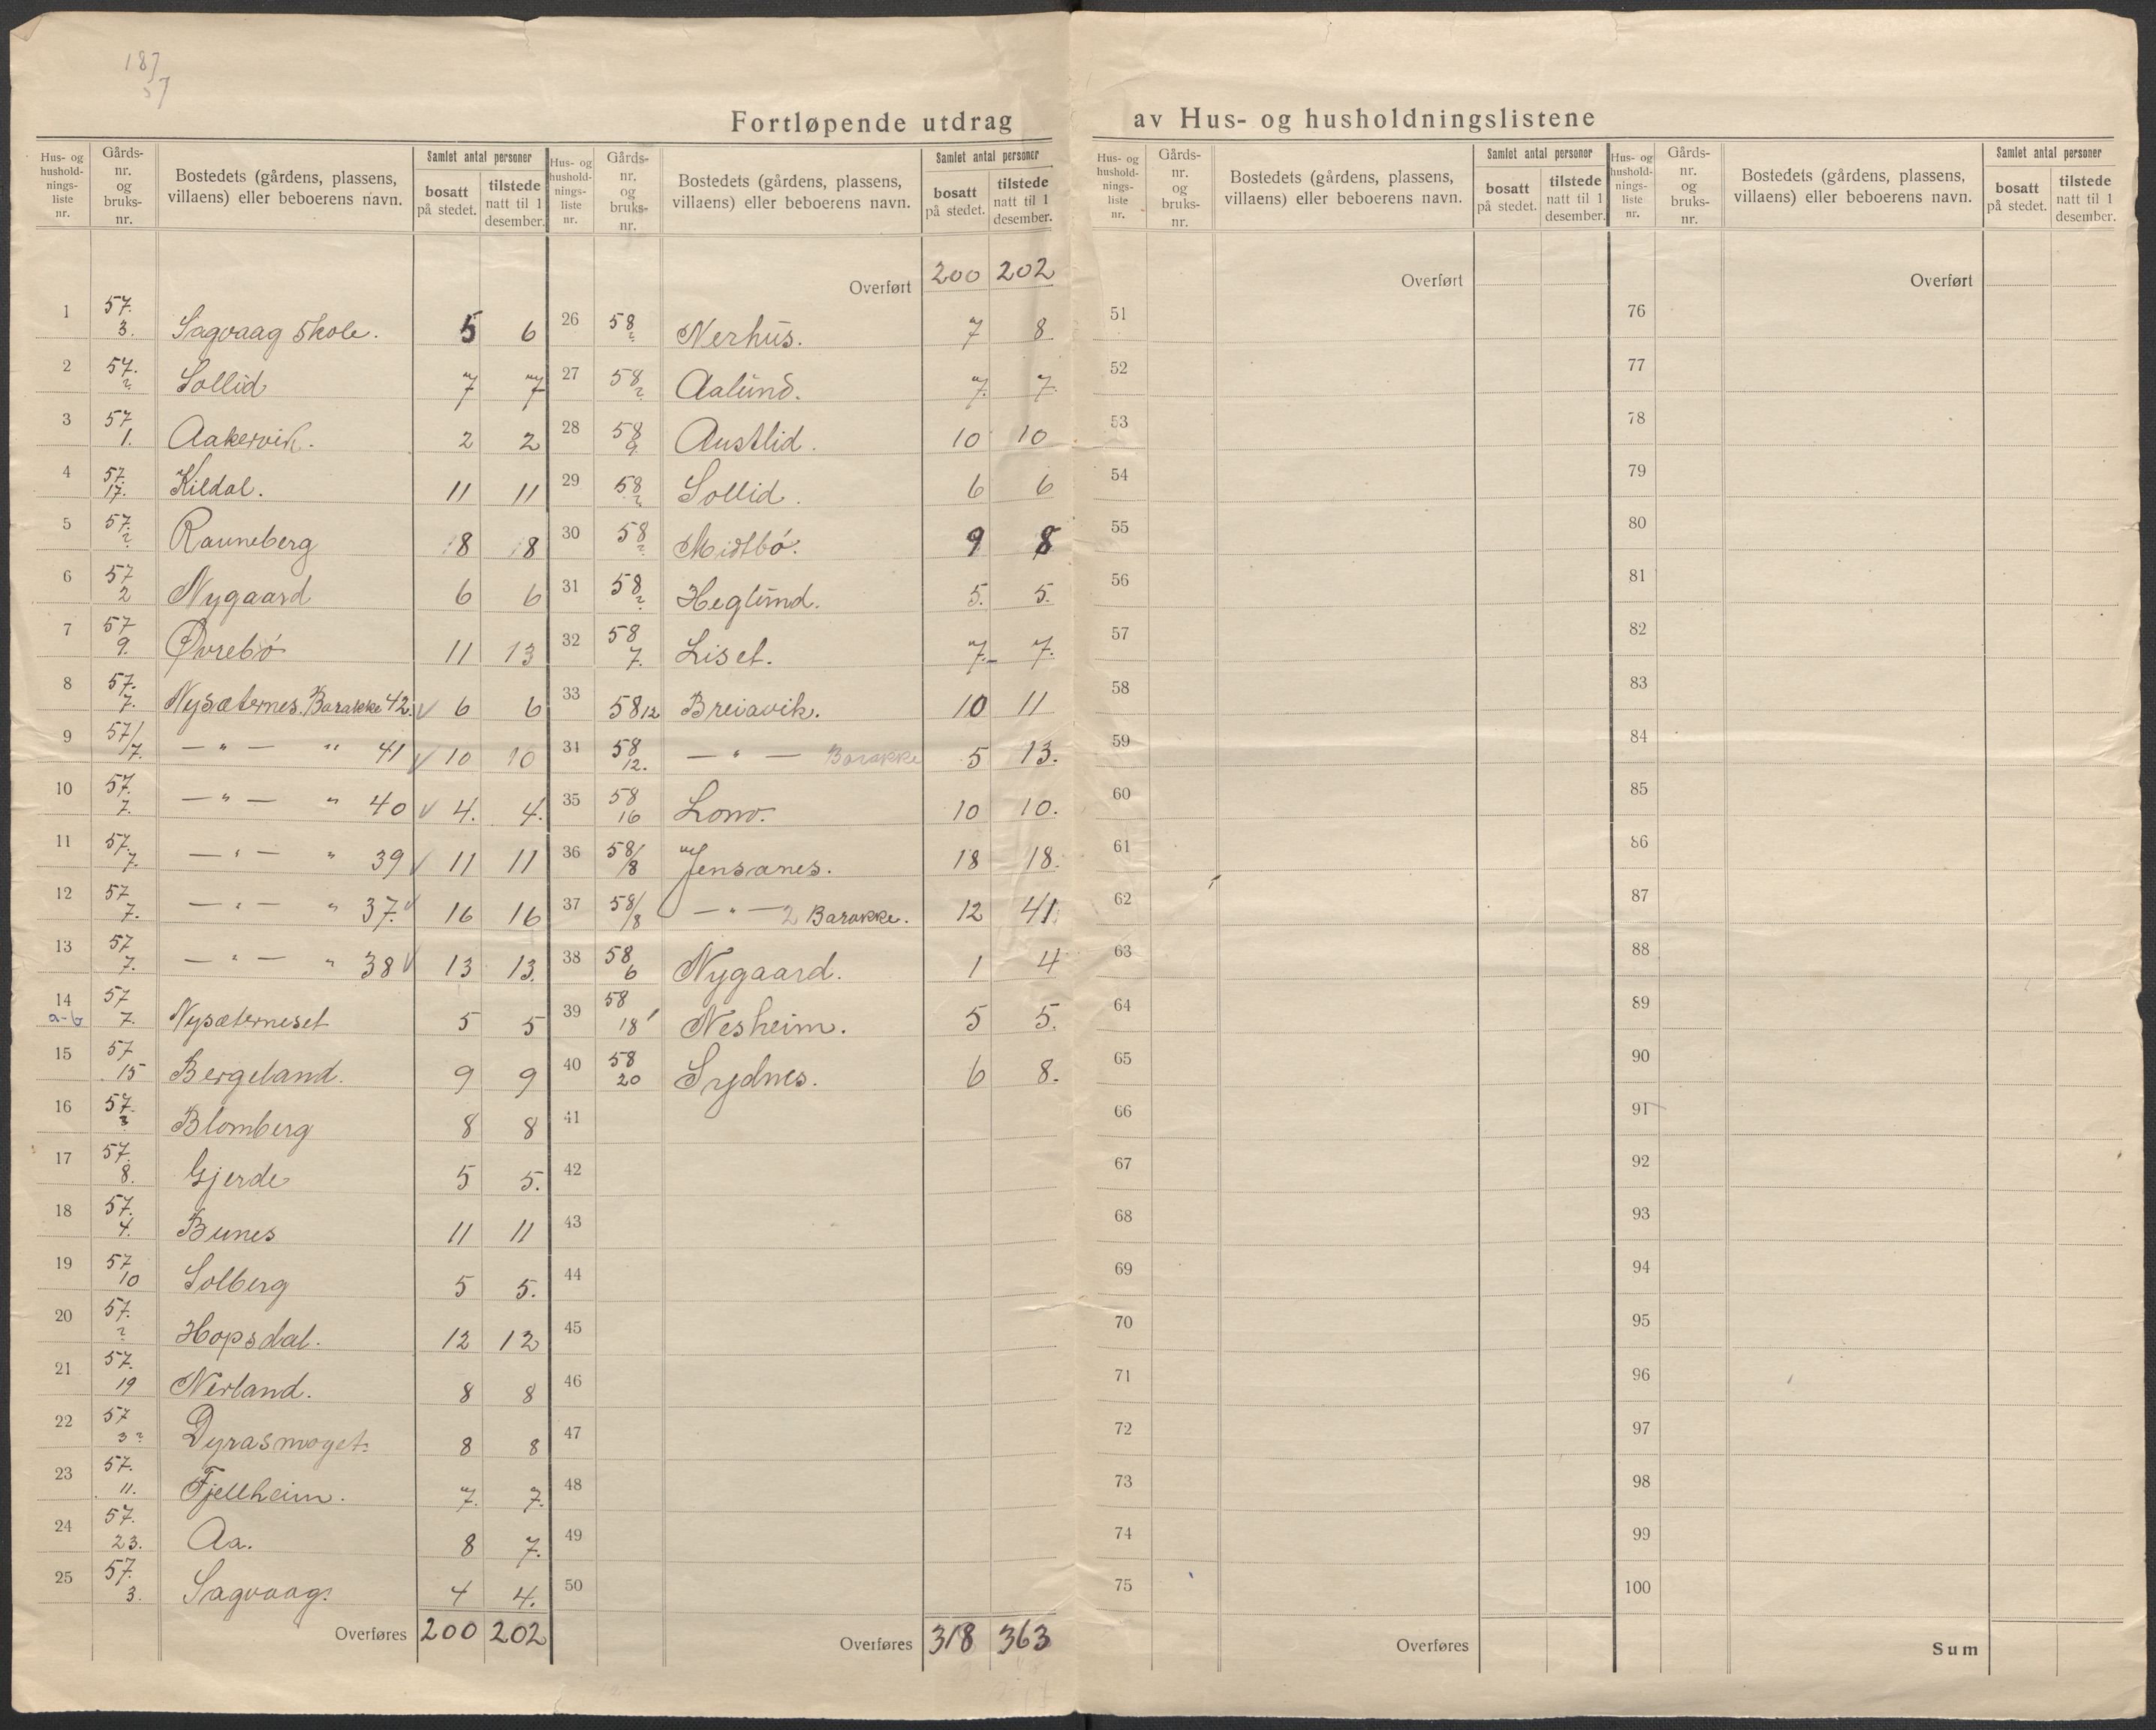 187
57
Fortløpende utdrag av Hus- og husholdningslistene
Hus- og husholdningsliste nr. | Gårdsnr. og bruksnr. | Bostedets (gårdens, plassens, villaens) eller beboerens navn. | Samlet antal personer bosatt på stedet. | tilstede natt til 1 desember.
1 57. 3. Sagvaag Skole. 5 6
2 57. ? Sollid 7 7
3 57 1. Aakervik. 2 2
4 57. 17. Kildal. 11 11
5 57. ? Rauneberg 8 8
6 57 2 Nygaard 6 6
7 57 9. Øvrebö 11 13
8 57. 7. Nysæternes. Barakke 42. V 6 6
9 57/7. — " — " 41 V 10 10
10 57. 7. — " — " 40 V 4. 4.
11 57. 7. — " — " 39 V 11 11
12 57 7. — " — " 37. V 16 16
13 57 7. — " — " 38 V 13 13.
14 a-b 57 7. Nysæterneset 5 5
15 57 15 Bergeland. 9 9
16 57. ? Blomberg 8 8
17 57. 8. Gjerde 5 5.
18 57. 4. Bunes 11 11
19 57 10 Solberg 5 5.
20 57. ? Hopsdal. 12 12
21 57. 19 Nerland. 8 8
22 57 3? Dyrasmoget. 8 8
23 57. 11. Fjellheim. 7. 7.
24 57. 23. Aa. 8 7.
25 57. 3. Sagvaag. 4 4.
Overføres 200 202
Hus- og husholdningsliste nr. | Gårdsnr. og bruksnr. | Bostedets (gårdens, plassens, villaens) eller beboerens navn. | Samlet antal personer bosatt på stedet. | tilstede natt til 1 desember.
Overført 200 202
26 58 ? Nerhus. 7 8
27 58 ? Aalund. 7. 7.
28 58 9. Austlid. 10 10
29 58 ? Sollid. 6 6
30 58 ? Midtbö. 9 8
31 58 ? Heglund. 5. 5.
32 58 7. Liset. 7. 7.
33 58 12 Breiavik. 10 11
34 58 12. — " — Barakke 5 13.
35 58 16 Lono. 10 10.
36 58/8 Jensanes. 18 18.
37 58/8 — " — 2 Barakke. 12 41.
38 58 6 Nygaard. 1 4
39 58 18 Nesheim. 5 5.
40 58 20 Sydnes. 6 8.
41
42
43
44
45
46
47
48
49
50
Overføres 318 363
Hus- og husholdningsliste nr. | Gårdsnr. og bruksnr. | Bostedets (gårdens, plassens, villaens) eller beboerens navn. | Samlet antal personer bosatt på stedet. | tilstede natt til 1 desember.
Overført
51
52
53
54
55
56
57
58
59
60
61
62
63
64
65
66
67
68
69
70
71
72
73
74
75
Overføres
Hus- og husholdningsliste nr. | Gårdsnr. og bruksnr. | Bostedets (gårdens, plassens, villaens) eller beboerens navn. | Samlet antal personer bosatt på stedet. | tilstede natt til 1 desember.
Overført
76
77
78
79
80
81
82
83
84
85
86
87
88
89
90
91
92
93
94
95
96
97
98
99
100
Sum